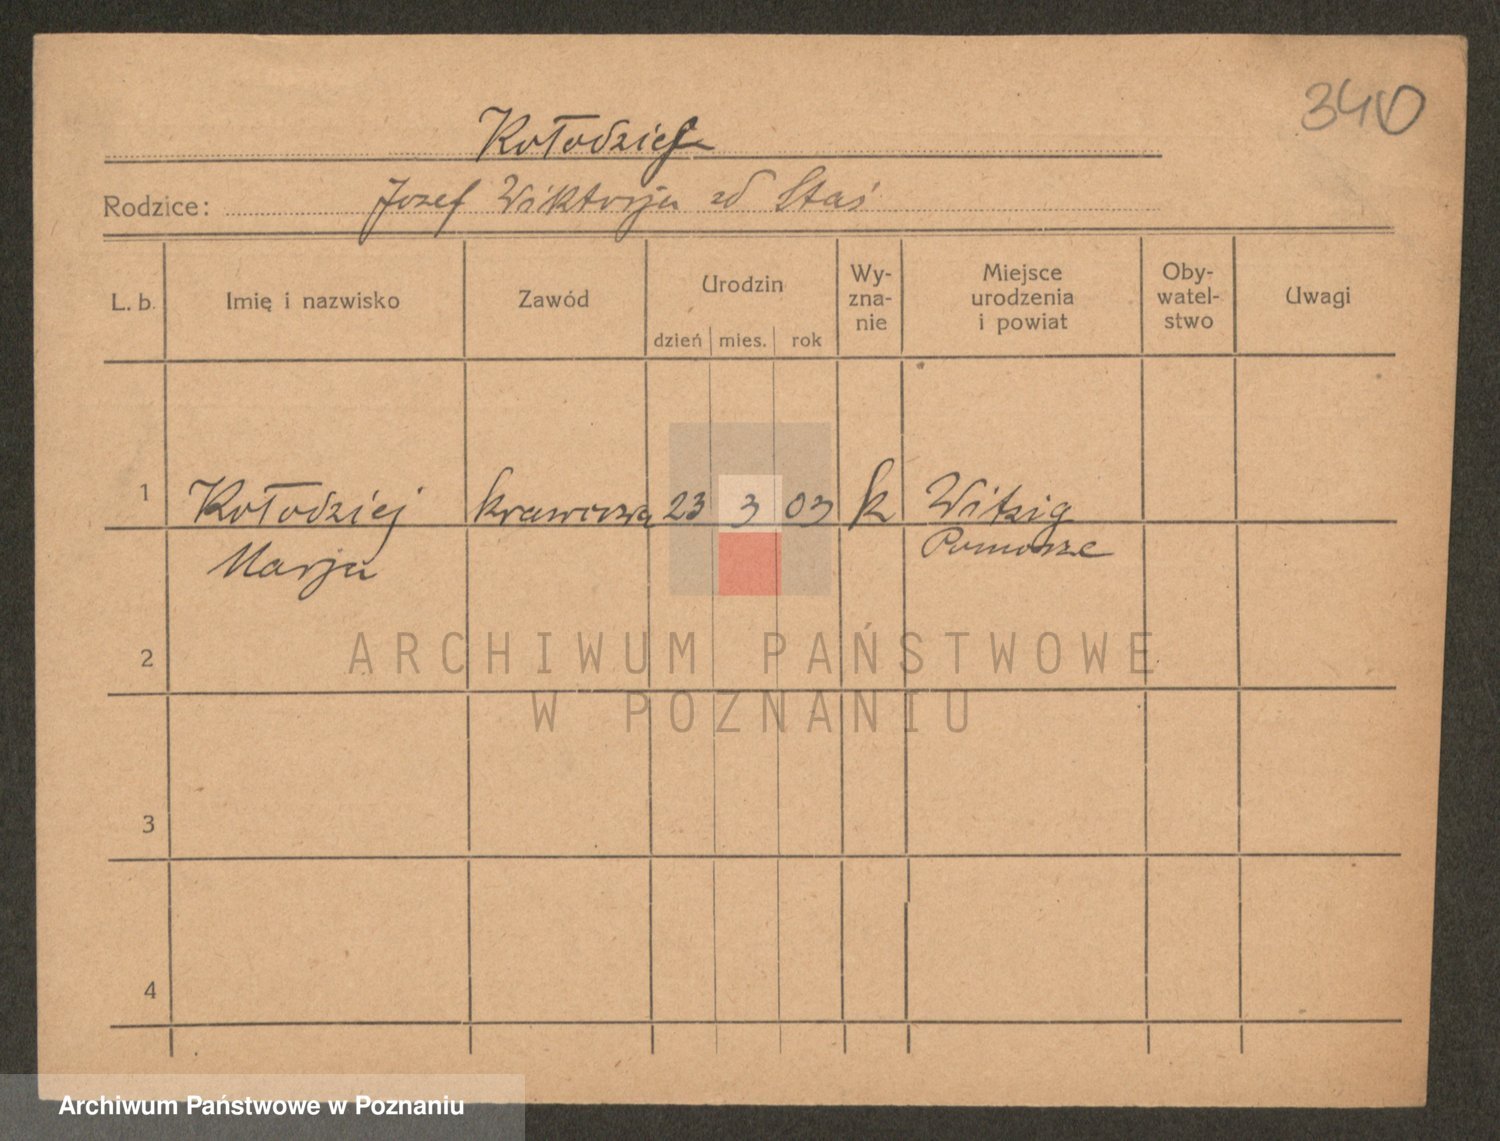 340
Kołodziej
Rodzice: Jozef Wiktorja zd Staś
L. b. Imię i nazwisko Zawód Urodzin Wy-zna-nie Miejsce urodzenia i powiat Oby-watel-stwo Uwagi
dzień mies. rok
1 Kołodziej krawcowa 23 3 03 k Witzig
Marja Pomorze
2
3
4
ARCHIWUM PAŃSTWOWE
W POZNANIU
Archiwum Państwowe w Poznaniu